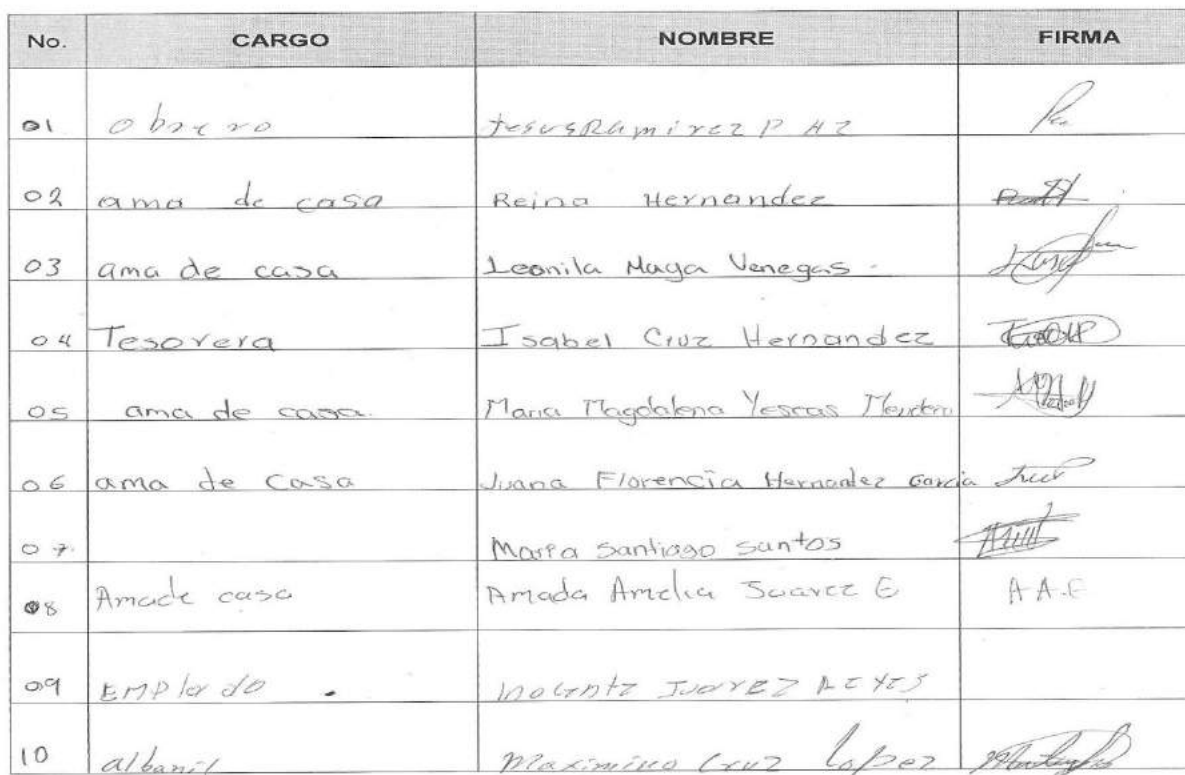 No. CARGO NOMBRE FIRMA
01 Obrero Jesus Ramirez P Hz
02 ama de casa Reina Hernandez
03 ama de casa Leonila Maya Venegas
04 Tesorera Isabel Cruz Hernandez
05 ama de casa. Maria Magdalena Yescas
06 ama de casa Juana Florencia Hernandez Garcia
07 Maria Santiago Santos
08 Ama de casa Amada Amelia Juarez E A A.E
09 EMPlado Inocente JuarEz
10 albanil Maximino Cruz Lopez